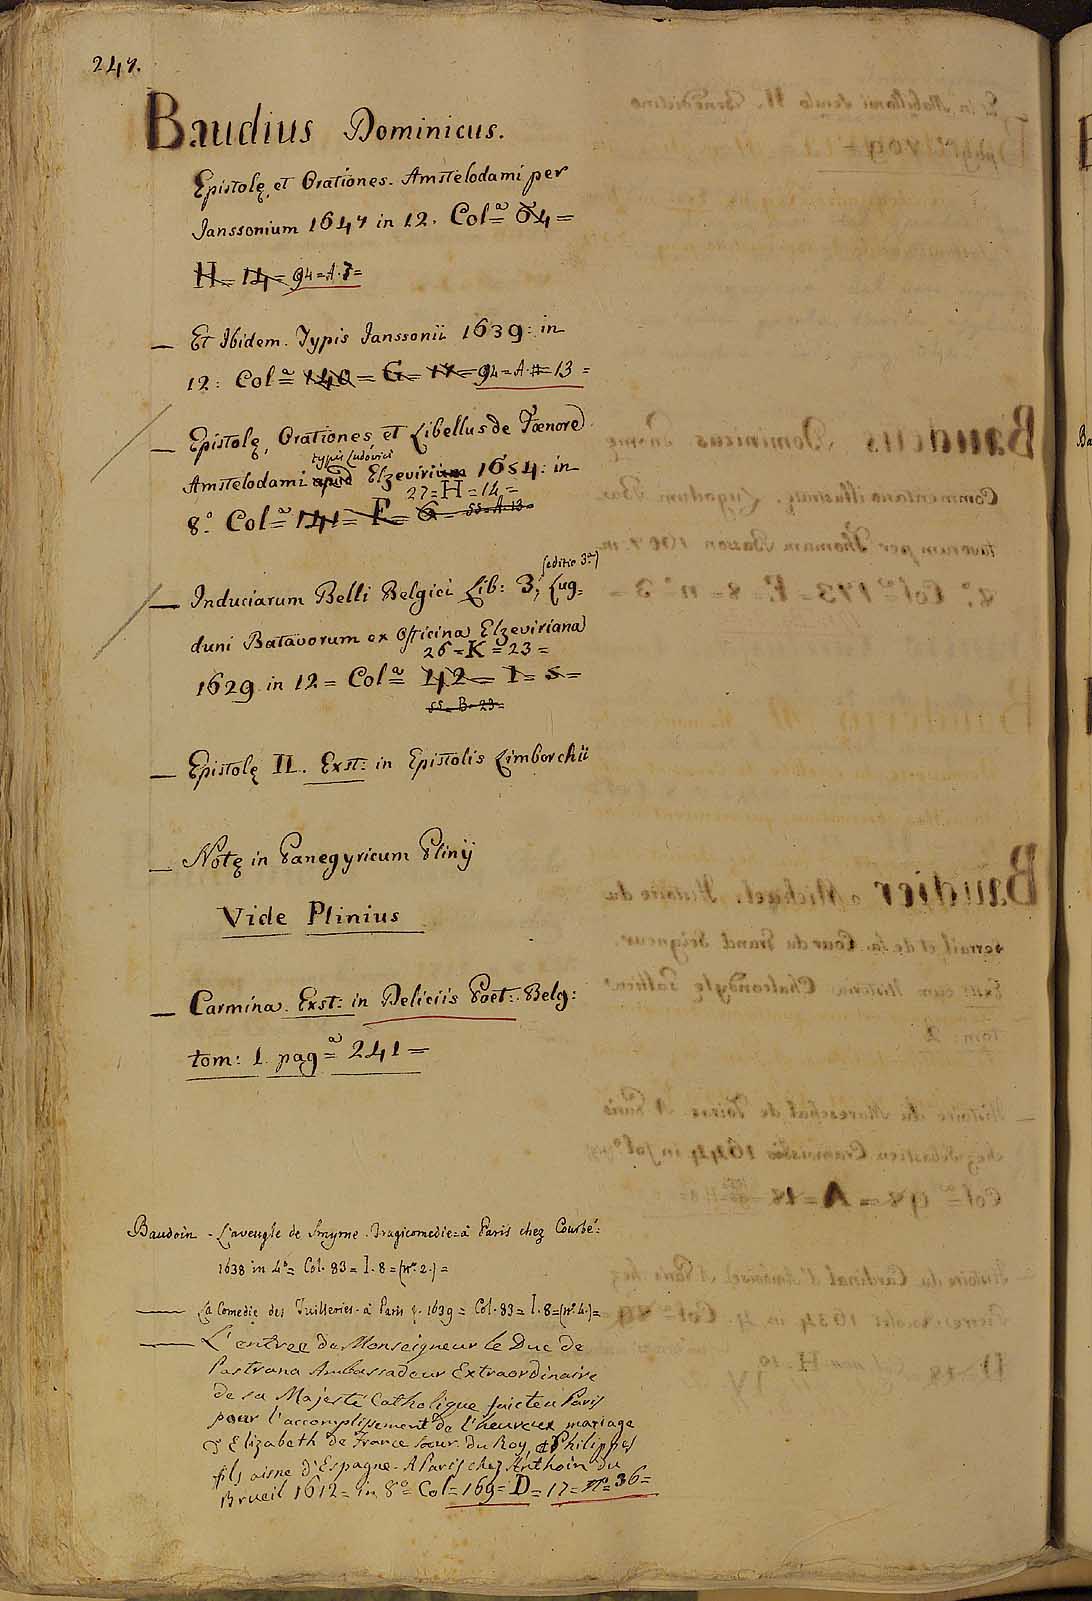 247.
Baudius Dominicus.
Epistolę, et Orationes. Amstelodami per
Janssonium 1647 in 12. Col=ª 64 =
H= 14= 94=A.7=
— Et Ibidem. Typis Janssonii 1639: in
12: Col=ª 140= G= 17= 94=A.#=13=
— Epistolę, Orationes et Libellus de Fœnore
typis Ludovici
Amstelodami apud Elzevirium 1654: in
27=H=14=
8.º Col=ª 141= F= G= 55=A 13=
(editio 3.ª)
— Induciarum Belli Belgici Lib: 3; Lug-
duni Batavorum ex Officina Elzeviriana
26=K=23=
1629 in 12= Col=ª 42= I= s=
55=B=23=
— Epistolę II. Exst: in Epistolis Limborchii
— Notę in Panegyricum Plinij
Vide Plinius
— Carmina. Exst: in Deliciis Poet: Belg:
tom: 1. pag=ª 241=
Baudoin - L'aveugle de Smyrne. Tragicomedie=à Paris chez Courbé:
1638 in 4º= Col. 83= I. 8=(nº 2.)=
— La Comedie des Tuilleries. à Paris 1639= Col. 83= I. 8=(nº 4.)=
— L'entree de Monseigneur le Duc de
Pastrana Ambassadeur Extraordinaire
de sa Majesté Catholique faicte a Paris
pour l'accomplissement de l'heureux mariage
d'Elizabeth de France sœur du Roy, et Philippes
fils aisne d'Espagne. A Paris chez Anthoin du
Brueil 1612= in 8º= Col=169=D=17=nº=36=